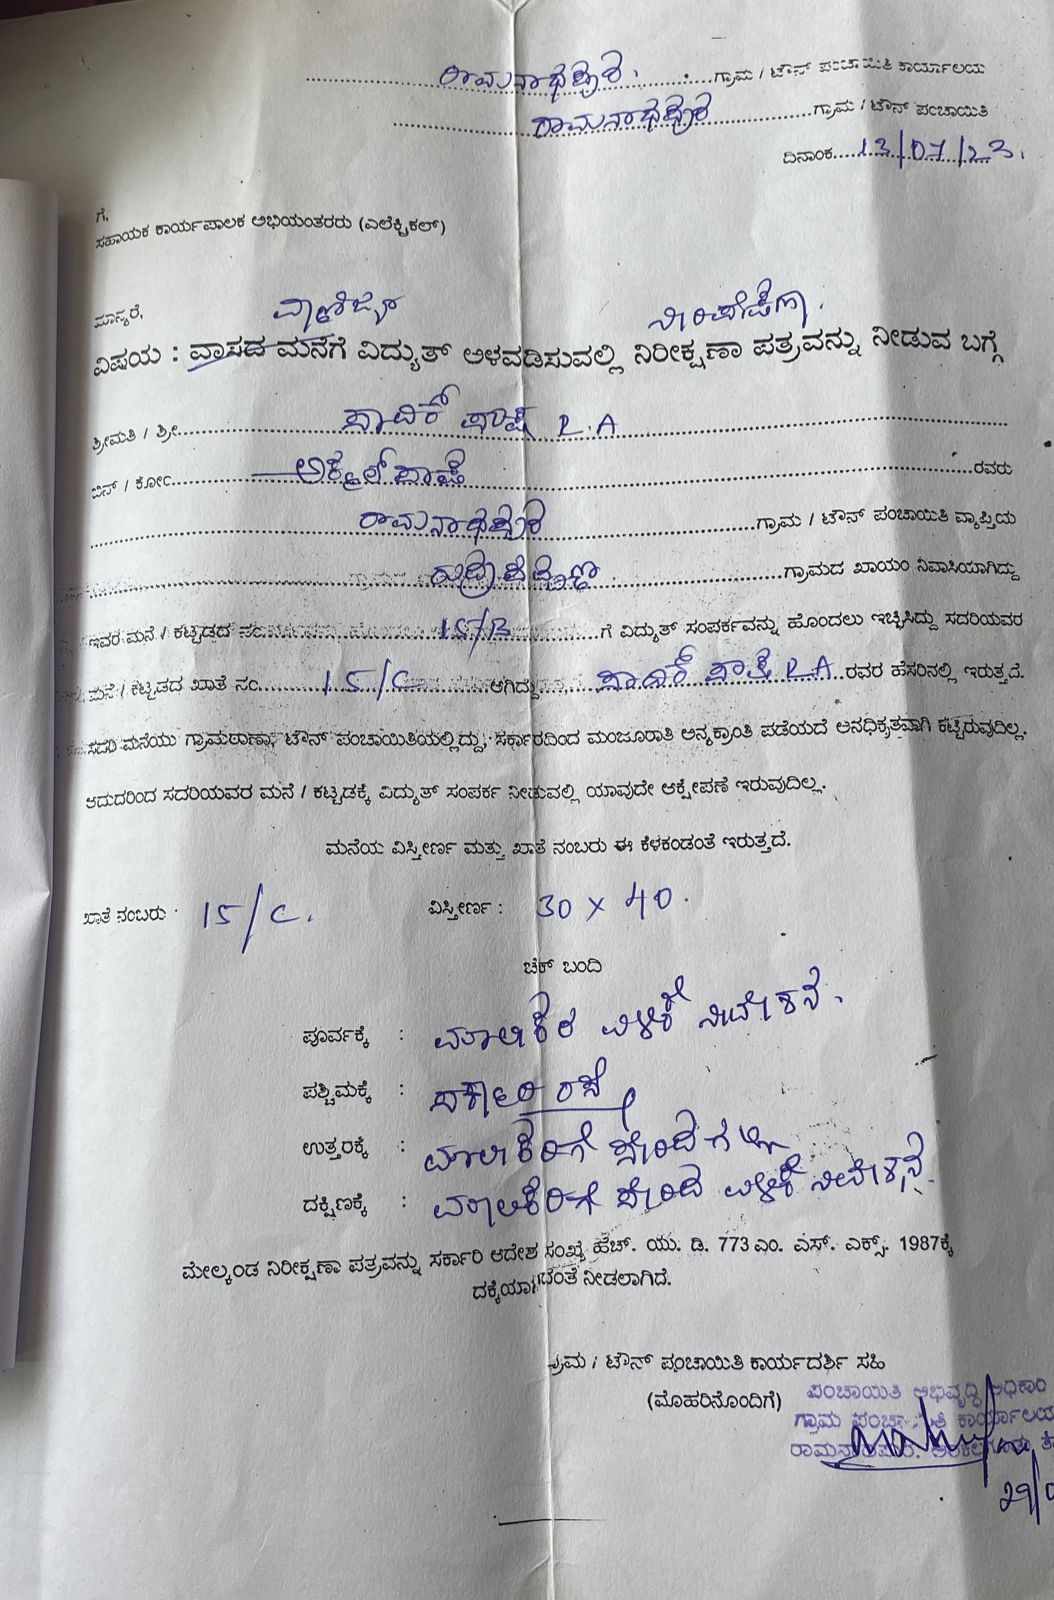 ರಾಮನಾಥಪುರ. ಗ್ರಾಮ / ಟೌನ್ ಪಂಚಾಯಿತಿ ಕಾರ್ಯಾಲಯ
ರಾಮನಾಥಪುರ ಗ್ರಾಮ / ಟೌನ್ ಪಂಚಾಯಿತಿ
ದಿನಾಂಕ 13/07/23.
ಗೆ,
ಸಹಾಯಕ ಕಾರ್ಯಪಾಲಕ ಅಭಿಯಂತರರು (ಎಲೆಕ್ಟ್ರಿಕಲ್)
ಮಾನ್ಯರೆ,
ವಾಣಿಜ್ಯ
ವಿಷಯ : ವಾಸದ ಮನೆಗೆ ವಿದ್ಯುತ್ ಅಳವಡಿಸುವಲ್ಲಿ ನಿರೀಕ್ಷಣಾ ಪತ್ರವನ್ನು ನೀಡುವ ಬಗ್ಗೆ
ಶ್ರೀಮತಿ / ಶ್ರೀ. R.A
ಬಿನ್ / ಕೋಂ ರವರು
ರಾಮನಾಥಪುರ ಗ್ರಾಮ / ಟೌನ್ ಪಂಚಾಯಿತಿ ವ್ಯಾಪ್ತಿಯ
ಗ್ರಾಮದ ಖಾಯಂ ನಿವಾಸಿಯಾಗಿದ್ದು
ಇವರ ಮನೆ / ಕಟ್ಟಡದ ನಂ. 15/B ಗೆ ವಿದ್ಯುತ್ ಸಂಪರ್ಕವನ್ನು ಹೊಂದಲು ಇಚ್ಛಿಸಿದ್ದು ಸದರಿಯವರ
ಮನೆ / ಕಟ್ಟಡದ ಖಾತೆ ನಂ. 15/C ಆಗಿದ್ದು R.A ರವರ ಹೆಸರಿನಲ್ಲಿ ಇರುತ್ತದೆ.
ಸದರಿ ಮನೆಯು ಗ್ರಾಮಠಾಣಾ, ಟೌನ್ ಪಂಚಾಯಿತಿಯಲ್ಲಿದ್ದು, ಸರ್ಕಾರದಿಂದ ಮಂಜೂರಾತಿ ಅನ್ಯಕ್ರಾಂತಿ ಪಡೆಯದೆ ಅನಧಿಕೃತವಾಗಿ ಕಟ್ಟಿರುವುದಿಲ್ಲ.
ಆದುದರಿಂದ ಸದರಿಯವರ ಮನೆ / ಕಟ್ಟಡಕ್ಕೆ ವಿದ್ಯುತ್ ಸಂಪರ್ಕ ನೀಡುವಲ್ಲಿ ಯಾವುದೇ ಆಕ್ಷೇಪಣೆ ಇರುವುದಿಲ್ಲ.
ಮನೆಯ ವಿಸ್ತೀರ್ಣ ಮತ್ತು ಖಾತೆ ನಂಬರು ಈ ಕೆಳಕಂಡಂತೆ ಇರುತ್ತದೆ.
ಖಾತೆ ನಂಬರು : 15/C. ವಿಸ್ತೀರ್ಣ : 30 x 40.
ಚೆಕ್ ಬಂದಿ
ಪೂರ್ವಕ್ಕೆ : ಮಾಲೀಕರ ವಿಳಕೆ ನಿವೇಶನ.
ಪಶ್ಚಿಮಕ್ಕೆ : ಸರ್ಕಾರಿ ರಸ್ತೆ
ಉತ್ತರಕ್ಕೆ : ಮಾಲೀಕರಿಗೆ ಸೇರಿದ ಗಲ್ಲಿ
ದಕ್ಷಿಣಕ್ಕೆ : ಮಾಲೀಕರಿಗೆ ಸೇರಿದ ವಿಳಕೆ ನಿವೇಶನ.
ಮೇಲ್ಕಂಡ ನಿರೀಕ್ಷಣಾ ಪತ್ರವನ್ನು ಸರ್ಕಾರಿ ಆದೇಶ ಸಂಖ್ಯೆ ಹೆಚ್. ಯು. ಡಿ. 773 ಎಂ. ಎಸ್. ಎಕ್ಸ್. 1987ಕ್ಕೆ
ನೀಡಲಾಗಿದೆ.
ಗ್ರಾಮ / ಟೌನ್ ಪಂಚಾಯಿತಿ ಕಾರ್ಯದರ್ಶಿ ಸಹಿ
(ಮೊಹರಿನೊಂದಿಗೆ)
ಪಂಚಾಯಿತಿ ಅಭಿವೃದ್ಧಿ ಅಧಿಕಾರಿ
ಗ್ರಾಮ ಪಂಚಾಯಿತಿ ಕಾರ್ಯಾಲಯ